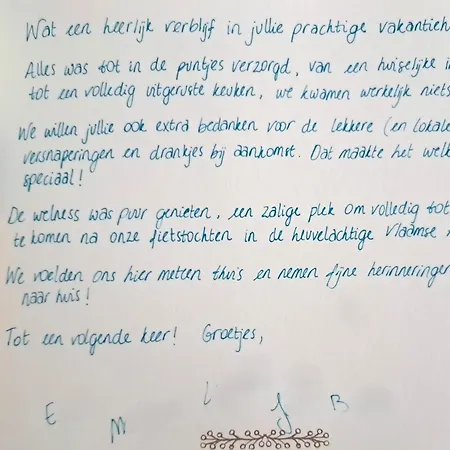 Wat een heerlijk verblijf in jullie prachtige vakantieh
Alles was tot in de puntjes verzorgd, van een huiselijke i
tot een volledig uitgeruste keuken, we kwamen werkelijk niets
We willen jullie ook extra bedanken voor de lekkere (en lokale
versnaperingen en drankjes bij aankomst. Dat maakte het welk
speciaal!
De welness was puur genieten, een zalige plek om volledig tot
te komen na onze fietstochten in de heuvelachtige Vlaamse
We voelden ons hier meteen thuis en nemen fijne herinneringen
naar huis!
Tot een volgende keer! Groetjes,
E M L J B